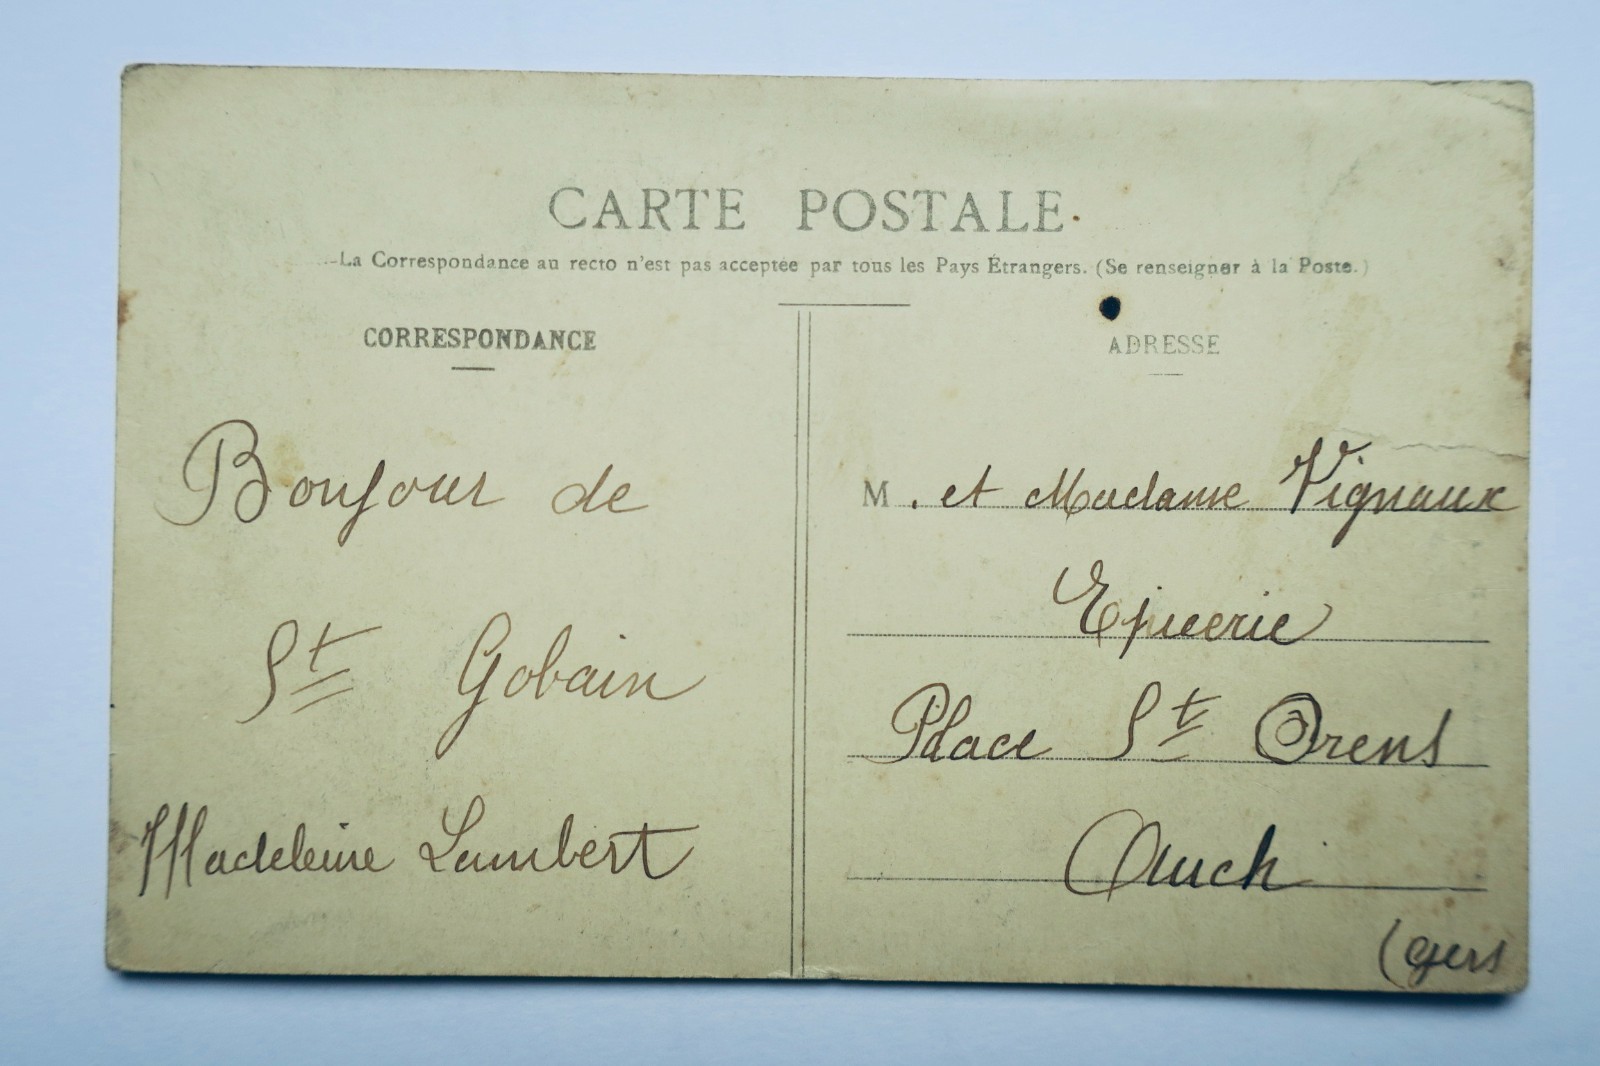 CARTE POSTALE
La Correspondance au recto n'est pas acceptée par tous les Pays Étrangers. (Se renseigner à la Poste.)
CORRESPONDANCE
Bonjour de
St Gobain
Madeleine Lambert
ADRESSE
M. et Madame Vignaux
Epicerie
Place St Orens
Auch
(Gers